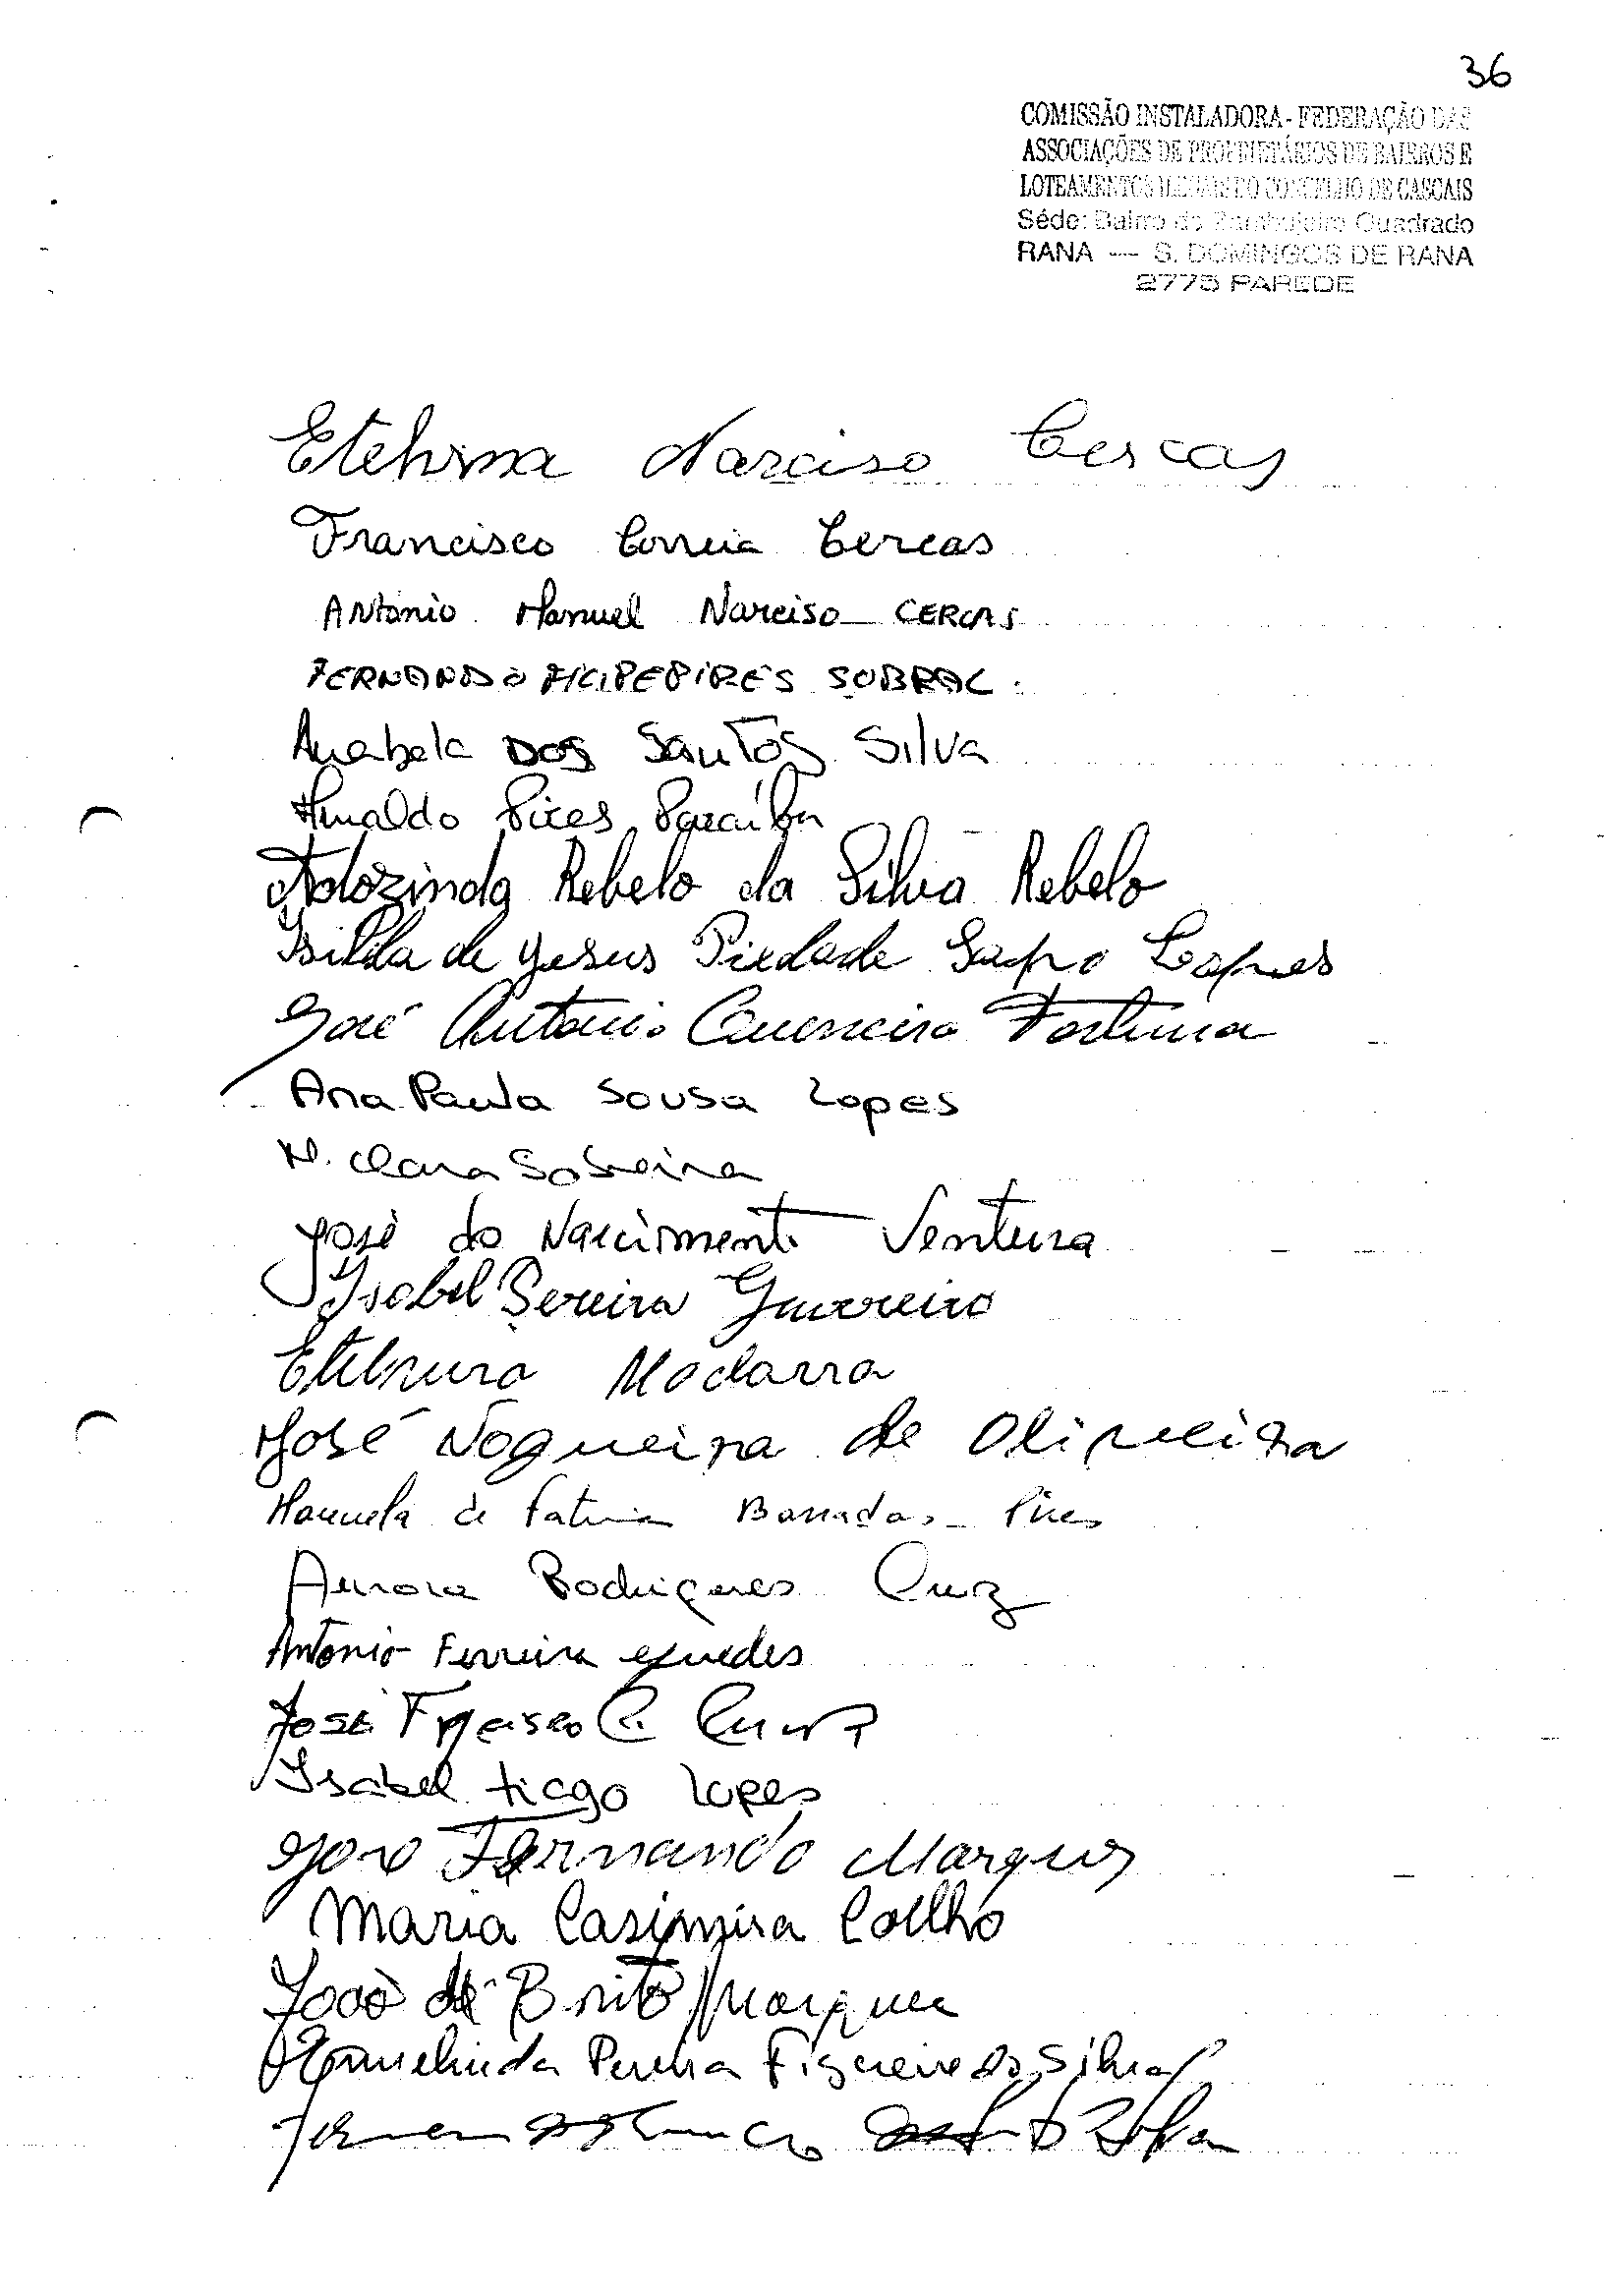 36
COMISSÃO INSTALADORA - FEDERAÇÃO DAS
ASSOCIAÇÕES DE PROPRIETÁRIOS DE BAIRROS E
LOTEAMENTOS ILEGAIS DO CONCELHO DE CASCAIS
Séde: Bairro do Zambujeiro Quadrado
RANA — S. DOMINGOS DE RANA
2775 PAREDE
Etelvina Narciso Cercas
Francisco Correia Cercas
António Manuel Narciso CERCAS
FERNANDO FILIPE PIRES SOBRAL
Anabela DOS Santos Silva
Arnaldo Pires Paraíba
Adozinda Rebelo da Silva Rebelo
Isilda de Jesus Piedade Sapo Lopes
José António Guerreiro Fortuna
Ana Paula Sousa Lopes
M. Clara Sobreira
José do Nascimento Ventura
Isabel Pereira Guerreiro
Etelvina Modarra
José Nogueira de Oliveira
Manuela de Fatima Barradas Pires
Aurora Rodrigues Cruz
António Ferreira Guedes
José Francisco C.
Isabel tiago Lopes
Fernando Marques
Maria Casimira Coelho
João de Brito Marques
Ermelinda Pereira Figueiredo Silva